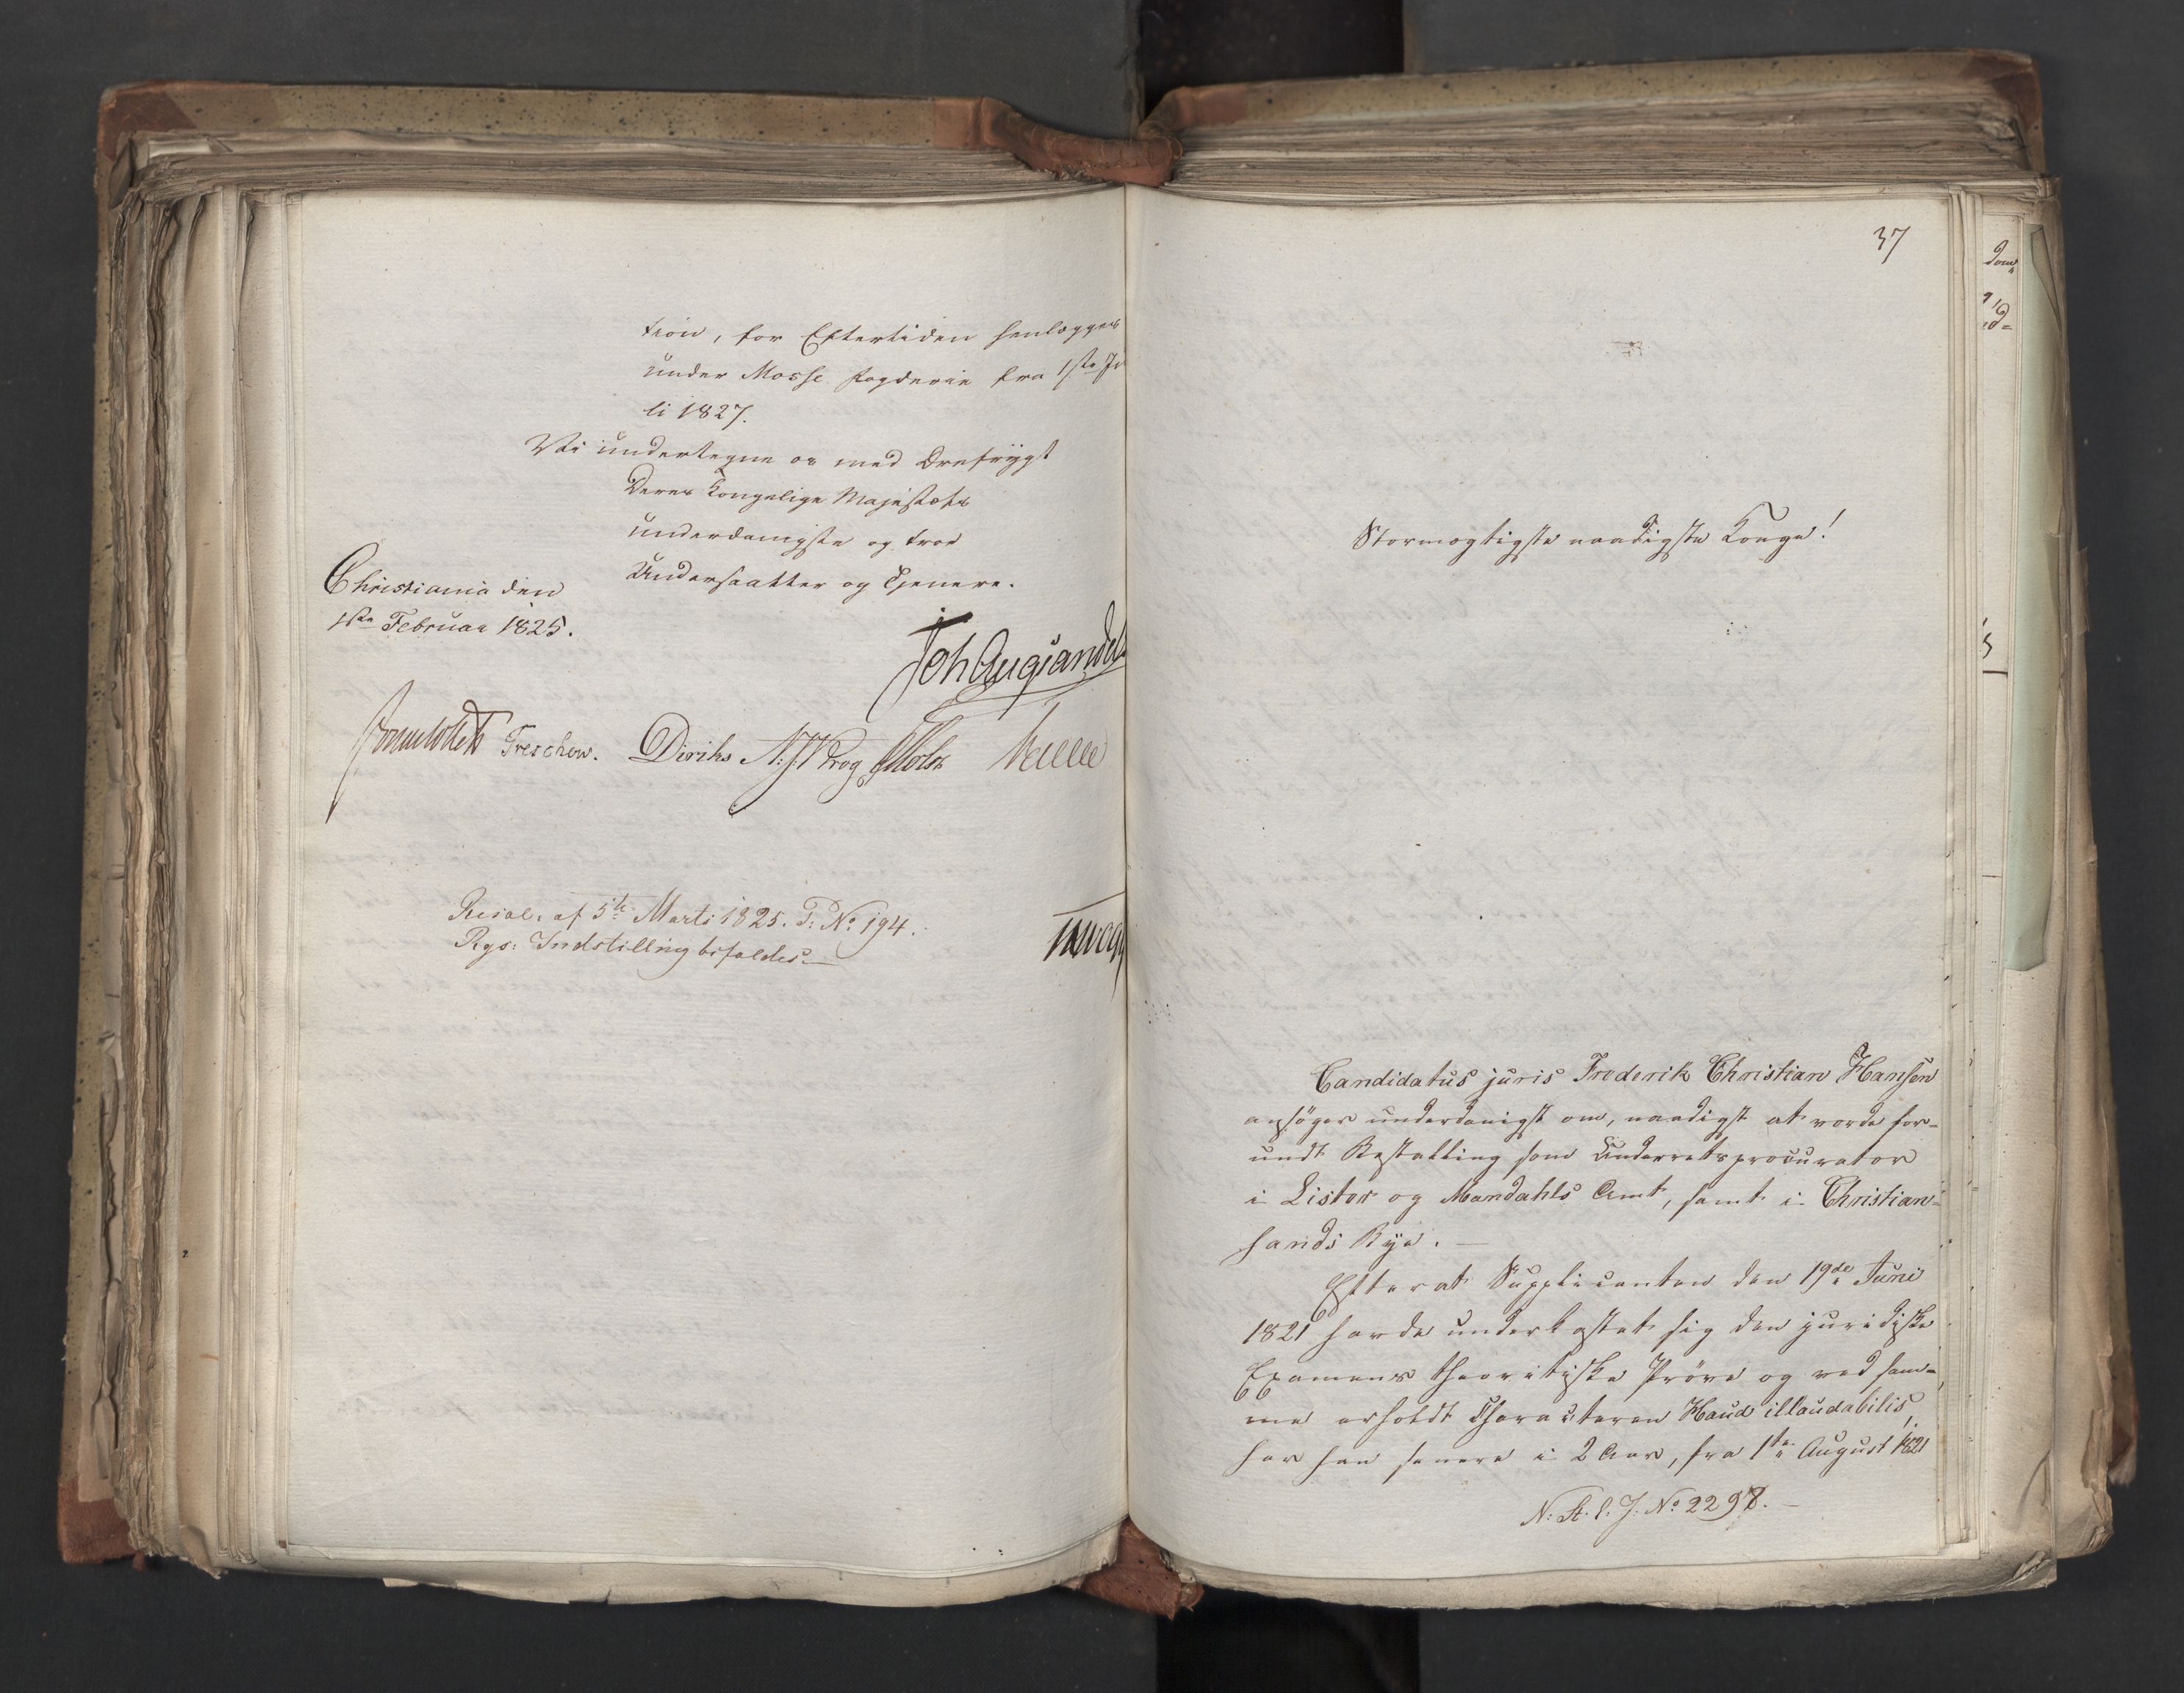 tion, for Eftertiden henlægges
under Mosse Fogderie fra 1ste Ju
li 1827.
Vi undertegne os med Ærefrygt
Deres Kongelige Majestæts
underdanigste og troe
Undersaatter og Tjenere.
Christiania den
1ste Februar 1825.
Joh Aug Sandels
Sommerhielm Treschow. Diriks N: J: Krog Motz
Resol: af 5te Marti 1825. P: No 194.
Rgs: Indstilling bifaldes.—
37
Stormægtigste naadigste Konge!
Candidatus juris Frederik Christian Hansen
ansøger underdanigst om, naadigst at vorde for-
undt Bestalling som Underretsprocurator
i Lister og Mandahls Amt, samt i Christian-
sands Bye. —
Efterat Supplicanten den 19de Juni
1821 havde underkastet sig den juridiske
Examens theoretiske Prøve og ved sam-
me erholdt Characteren Haud illaudabilis,
har han senere i 2 Aar, fra 1ste August 1821
N: St. E. J: No 2298. —